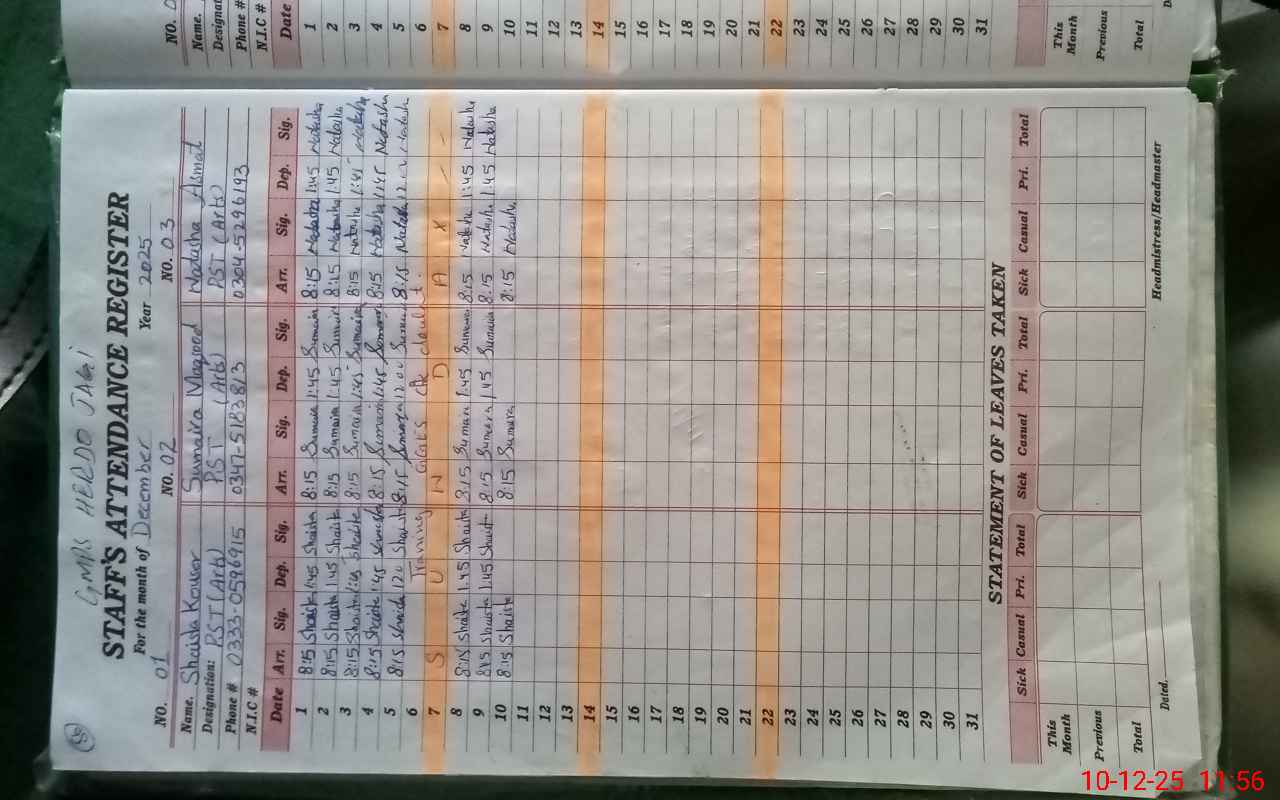 NO. 0
Name.
Designat
Phone #
N.I.C #
Date
1
2
3
4
5
6
7
8
9
10
11
12
13
14
15
16
17
18
19
20
21
22
23
24
25
26
27
28
29
30
31
This Month
Previous
Total
GMPS HERDO JAGI
STAFF'S ATTENDANCE REGISTER
For the month of December Year 2025
NO. 01 NO. 02 NO. 03
Name. Shaista Kouser Sumaira Maqsood Natasha Asmat
Designation: PST (Arts) PST (Arts) PST (Arts)
Phone # 0333-0596915 0347-5183813 0304-5296193
N.I.C #
Date Arr. Sig. Dep. Sig. Arr. Sig. Dep. Sig. Arr. Sig. Dep. Sig.
1 8:15 Shaista 1:45 Shaista 8:15 Sumaira 1:45 Sumaira 8:15 Natasha 1:45 Natasha
2 8:15 Shaista 1:45 Shaista 8:15 Sumaira 1:45 Sumaira 8:15 Natasha 1:45 Natasha
3 8:15 Shaista 1:45 Shaista 8:15 Sumaira 1:45 Sumaira 8:15 Natasha 1:45 Natasha
4 8:15 Shaista 1:45 Shaista 8:15 Sumaira 1:45 Sumaira 8:15 Natasha 1:45 Natasha
5 8:15 Shaista 12:0 Shaista 8:15 Sumaira 12:00 Sumaira 8:15 Natasha 12:00 Natasha
6 Training
7 S U N D A Y
8 8:15 Shaista 1:45 Shaista 8:15 Sumaira 1:45 Sumaira 8:15 Natasha 1:45 Natasha
9 8:15 Shaista 1:45 Shaista 8:15 Sumaira 1:45 Sumaira 8:15 Natasha 1:45 Natasha
10 8:15 Shaista 8:15 Sumaira 8:15 Natasha
11
12
13
14
15
16
17
18
19
20
21
22
23
24
25
26
27
28
29
30
31
STATEMENT OF LEAVES TAKEN
Sick Casual Pri. Total Sick Casual Pri. Total Sick Casual Pri. Total
This Month
Previous
Total
Dated. Headmistress/Headmaster
10-12-25 11:56